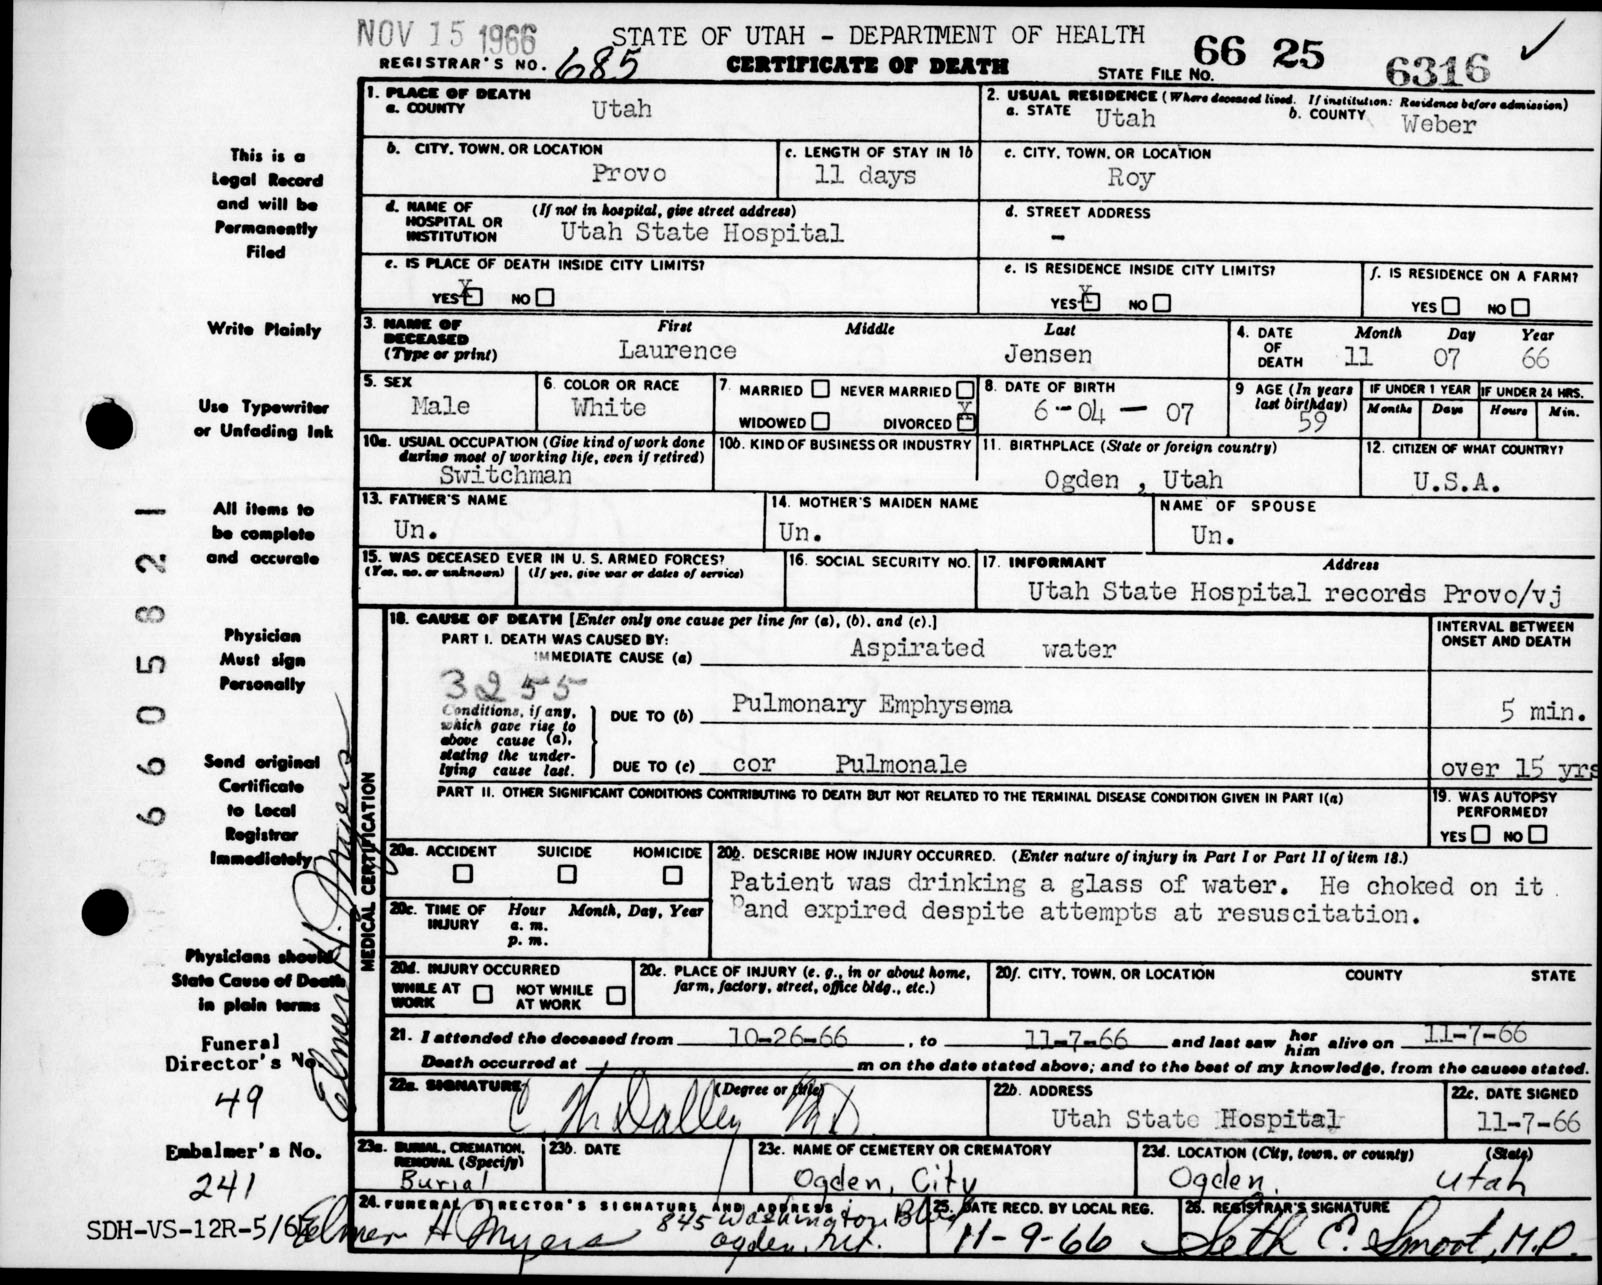 NOV 15 1966
STATE OF UTAH - DEPARTMENT OF HEALTH
REGISTRAR'S NO. 685
CERTIFICATE OF DEATH
STATE FILE NO. 66 25 6316 ✓
1. PLACE OF DEATH
a. COUNTY Utah
2. USUAL RESIDENCE (Where deceased lived. If institution: Residence before admission)
a. STATE Utah b. COUNTY Weber
b. CITY, TOWN, OR LOCATION Provo
c. LENGTH OF STAY IN 1b 11 days
c. CITY, TOWN, OR LOCATION Roy
d. NAME OF HOSPITAL OR INSTITUTION (If not in hospital, give street address)
Utah State Hospital
d. STREET ADDRESS
-
e. IS PLACE OF DEATH INSIDE CITY LIMITS?
YES X NO
e. IS RESIDENCE INSIDE CITY LIMITS?
YES X NO
f. IS RESIDENCE ON A FARM?
YES NO
3. NAME OF DECEASED (Type or print)
First Middle Last
Laurence Jensen
4. DATE OF DEATH
Month Day Year
11 07 66
5. SEX
Male
6. COLOR OR RACE
White
7. MARRIED NEVER MARRIED
WIDOWED DIVORCED X
8. DATE OF BIRTH
6-04-07
9 AGE (In years last birthday)
59
IF UNDER 1 YEAR
Months Days
IF UNDER 24 HRS.
Hours Min.
10a. USUAL OCCUPATION (Give kind of work done during most of working life, even if retired)
Switchman
10b. KIND OF BUSINESS OR INDUSTRY
11. BIRTHPLACE (State or foreign country)
Ogden , Utah
12. CITIZEN OF WHAT COUNTRY?
U.S.A.
13. FATHER'S NAME
Un.
14. MOTHER'S MAIDEN NAME
Un.
NAME OF SPOUSE
Un.
15. WAS DECEASED EVER IN U. S. ARMED FORCES?
(Yes, no, or unknown) (If yes, give war or dates of service)
16. SOCIAL SECURITY NO.
17. INFORMANT Address
Utah State Hospital records Provo/vj
MEDICAL CERTIFICATION
18. CAUSE OF DEATH [Enter only one cause per line for (a), (b), and (c).]
PART I. DEATH WAS CAUSED BY:
IMMEDIATE CAUSE (a) Aspirated water
INTERVAL BETWEEN ONSET AND DEATH
3255
Conditions, if any, which gave rise to above cause (a), stating the under-lying cause last.
DUE TO (b) Pulmonary Emphysema 5 min.
DUE TO (c) cor Pulmonale over 15 yrs
PART II. OTHER SIGNIFICANT CONDITIONS CONTRIBUTING TO DEATH BUT NOT RELATED TO THE TERMINAL DISEASE CONDITION GIVEN IN PART I(a)
19. WAS AUTOPSY PERFORMED?
YES NO
20a. ACCIDENT SUICIDE HOMICIDE
20b. DESCRIBE HOW INJURY OCCURRED. (Enter nature of injury in Part I or Part II of item 18.)
Patient was drinking a glass of water. He choked on it
and expired despite attempts at resuscitation.
20c. TIME OF INJURY
Hour Month, Day, Year
a. m.
p. m.
20d. INJURY OCCURRED
WHILE AT WORK NOT WHILE AT WORK
20e. PLACE OF INJURY (e. g., in or about home, farm, factory, street, office bldg., etc.)
20f. CITY, TOWN, OR LOCATION COUNTY STATE
21. I attended the deceased from 10-26-66, to 11-7-66 and last saw her him alive on 11-7-66
Death occurred at m on the date stated above; and to the best of my knowledge, from the causes stated.
22a. SIGNATURE (Degree or title)
MD
22b. ADDRESS
Utah State Hospital
22c. DATE SIGNED
11-7-66
23a. BURIAL, CREMATION, REMOVAL (Specify)
Burial
23b. DATE
23c. NAME OF CEMETERY OR CREMATORY
Ogden, City
23d. LOCATION (City, town, or county) (State)
Ogden, Utah
24. FUNERAL DIRECTOR'S SIGNATURE AND ADDRESS
Elmer H Myers
845 Washington Blvd
Ogden, Ut.
25. DATE RECD. BY LOCAL REG.
11-9-66
26. REGISTRAR'S SIGNATURE
Seth E. Smoot, M.D.
This is a
Legal Record
and will be
Permanently
Filed
Write Plainly
Use Typewriter
or Unfading Ink
All items to
be complete
and accurate
Physician
Must sign
Personally
Send original
Certificate
to Local
Registrar
Immediately
Physicians should
State Cause of Death
in plain terms
Funeral
Director's No.
49
Embalmer's No.
241
SDH-VS-12R-5/65
Elmer H. Myers
66 05821